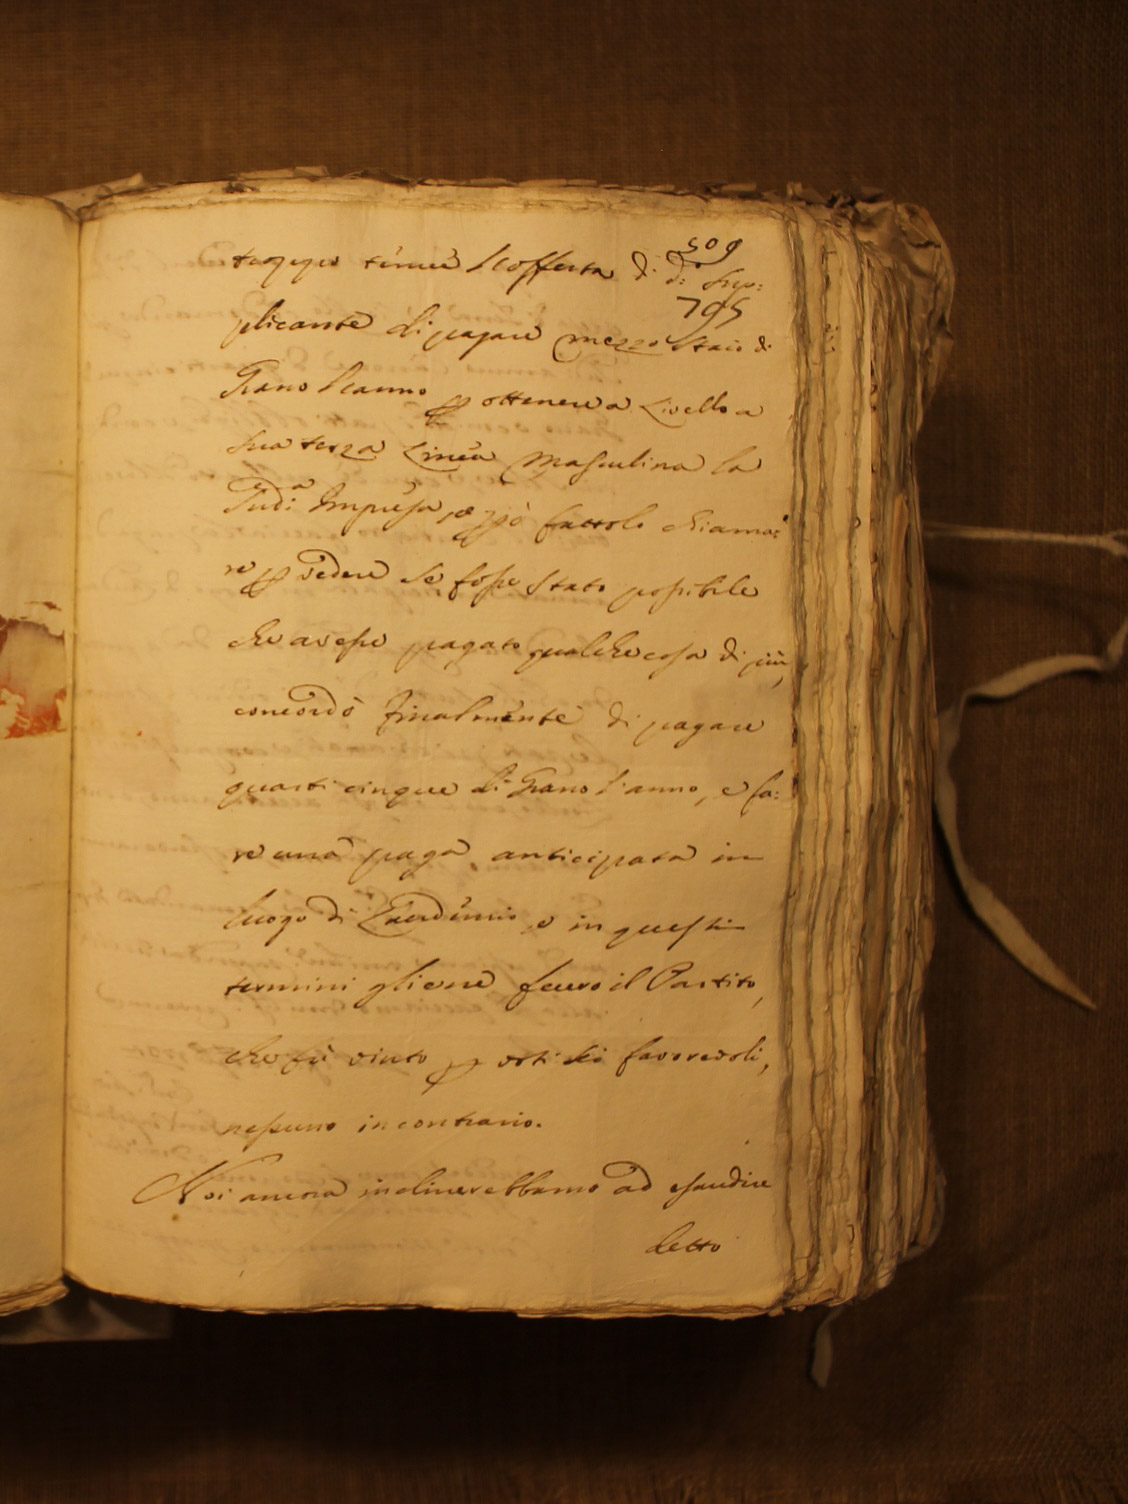 509
troppo tenue l'offerta di d:º Sup:
795
plicante di pagare mezzo Staio di
Grano l'anno p ottenere a Livello a
sua terza Linea Masculina la
Sud:ª Impresa, e p ciò fattolo chiama:
re p vedere se fosse stato possibile
che avesse pagato qualche cosa di più,
concordò finalmente di pagare
quarti cinque di Grano l'anno, e fa:
re una paga anticipata in
luogo di Laudemio, e in questi
termini gliene fecero il Partito,
che fù vinto p voti sei favorevoli,
nessuno in contrario.
Noi ancora inclinerebbamo ad esaudire
detto